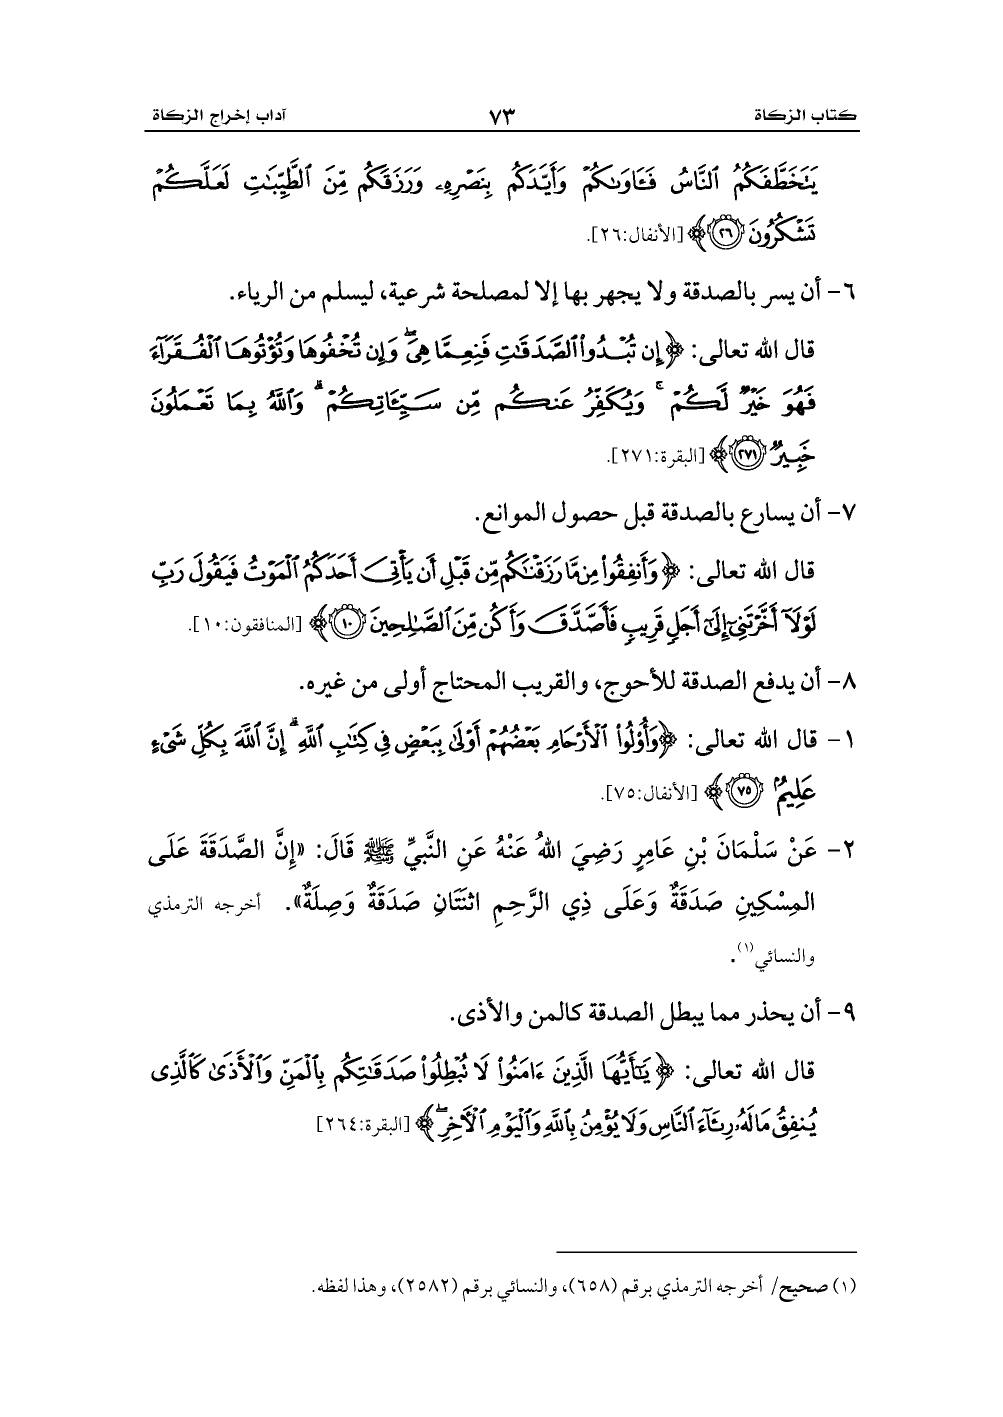 كتاب الزكاة ٧٣ آداب إخراج الزكاة
يَتَخَطَّفَكُمُ ٱلنَّاسُ فَـَٔاوَىٰكُمْ وَأَيَّدَكُم بِنَصْرِهِۦ وَرَزَقَكُم مِّنَ ٱلطَّيِّبَـٰتِ لَعَلَّكُمْ
تَشْكُرُونَ ۝٢٦﴾ [الأنفال:٢٦].
٦- أن يسر بالصدقة ولا يجهر بها إلا لمصلحة شرعية، ليسلم من الرياء.
قال الله تعالى: ﴿إِن تُبْدُوا۟ ٱلصَّدَقَـٰتِ فَنِعِمَّا هِىَ ۖ وَإِن تُخْفُوهَا وَتُؤْتُوهَا ٱلْفُقَرَآءَ
فَهُوَ خَيْرٌ لَّكُمْ ۚ وَيُكَفِّرُ عَنكُم مِّن سَيِّـَٔاتِكُمْ ۗ وَٱللَّهُ بِمَا تَعْمَلُونَ
خَبِيرٌ ۝٢٧١﴾ [البقرة:٢٧١].
٧- أن يسارع بالصدقة قبل حصول الموانع.
قال الله تعالى: ﴿وَأَنفِقُوا۟ مِن مَّا رَزَقْنَـٰكُم مِّن قَبْلِ أَن يَأْتِىَ أَحَدَكُمُ ٱلْمَوْتُ فَيَقُولَ رَبِّ
لَوْلَآ أَخَّرْتَنِىٓ إِلَىٰٓ أَجَلٍ قَرِيبٍ فَأَصَّدَّقَ وَأَكُن مِّنَ ٱلصَّـٰلِحِينَ ۝١٠﴾ [المنافقون:١٠].
٨- أن يدفع الصدقة للأحوج، والقريب المحتاج أولى من غيره.
١- قال الله تعالى: ﴿وَأُو۟لُوا۟ ٱلْأَرْحَامِ بَعْضُهُمْ أَوْلَىٰ بِبَعْضٍ فِى كِتَـٰبِ ٱللَّهِ ۗ إِنَّ ٱللَّهَ بِكُلِّ شَىْءٍ
عَلِيمٌۢ ۝٧٥﴾ [الأنفال:٧٥].
٢- عَنْ سَلْمَانَ بْنِ عَامِرٍ رَضِيَ اللهُ عَنْهُ عَنِ النَّبِيِّ ﷺ قَالَ: «إِنَّ الصَّدَقَةَ عَلَى
المِسْكِينِ صَدَقَةٌ وَعَلَى ذِي الرَّحِمِ اثْنَتَانِ صَدَقَةٌ وَصِلَةٌ». أخرجه الترمذي
والنسائي(١).
٩- أن يحذر مما يبطل الصدقة كالمن والأذى.
قال الله تعالى: ﴿يَـٰٓأَيُّهَا ٱلَّذِينَ ءَامَنُوا۟ لَا تُبْطِلُوا۟ صَدَقَـٰتِكُم بِٱلْمَنِّ وَٱلْأَذَىٰ كَٱلَّذِى
يُنفِقُ مَالَهُۥ رِئَآءَ ٱلنَّاسِ وَلَا يُؤْمِنُ بِٱللَّهِ وَٱلْيَوْمِ ٱلْـَٔاخِرِ ۖ﴾ [البقرة:٢٦٤]
(١) صحيح/ أخرجه الترمذي برقم (٦٥٨)، والنسائي برقم (٢٥٨٢)، وهذا لفظه.